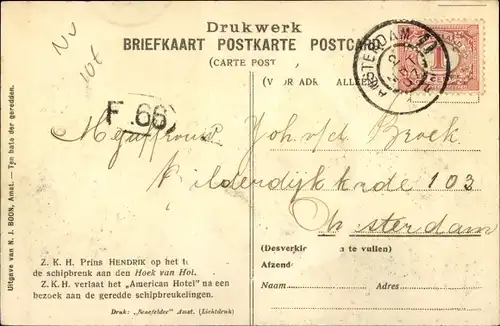 Drukwerk
BRIEFKAART POSTKARTE POSTCARD
(CARTE POST
(V OR ADR ALLEEN
AMSTERDAM
1
Nv
10€
F. 66
Mejuffrouw Joh. v/d Broek
Bilderdijkkade 103
Amsterdam
(Desverkie n te vullen)
Afzend
Naam Adres
Z. K. H. Prins HENDRIK op het t
de schipbreuk aan den Hoek van Hol.
Z. K. H. verlaat het „American Hotel" na een
bezoek aan de geredde schipbreukelingen.
Druk: „Senefelder" Amst. (Lichtdruk)
Uitgave van N. J. BOON, Amst. — Ten bate der geredden.